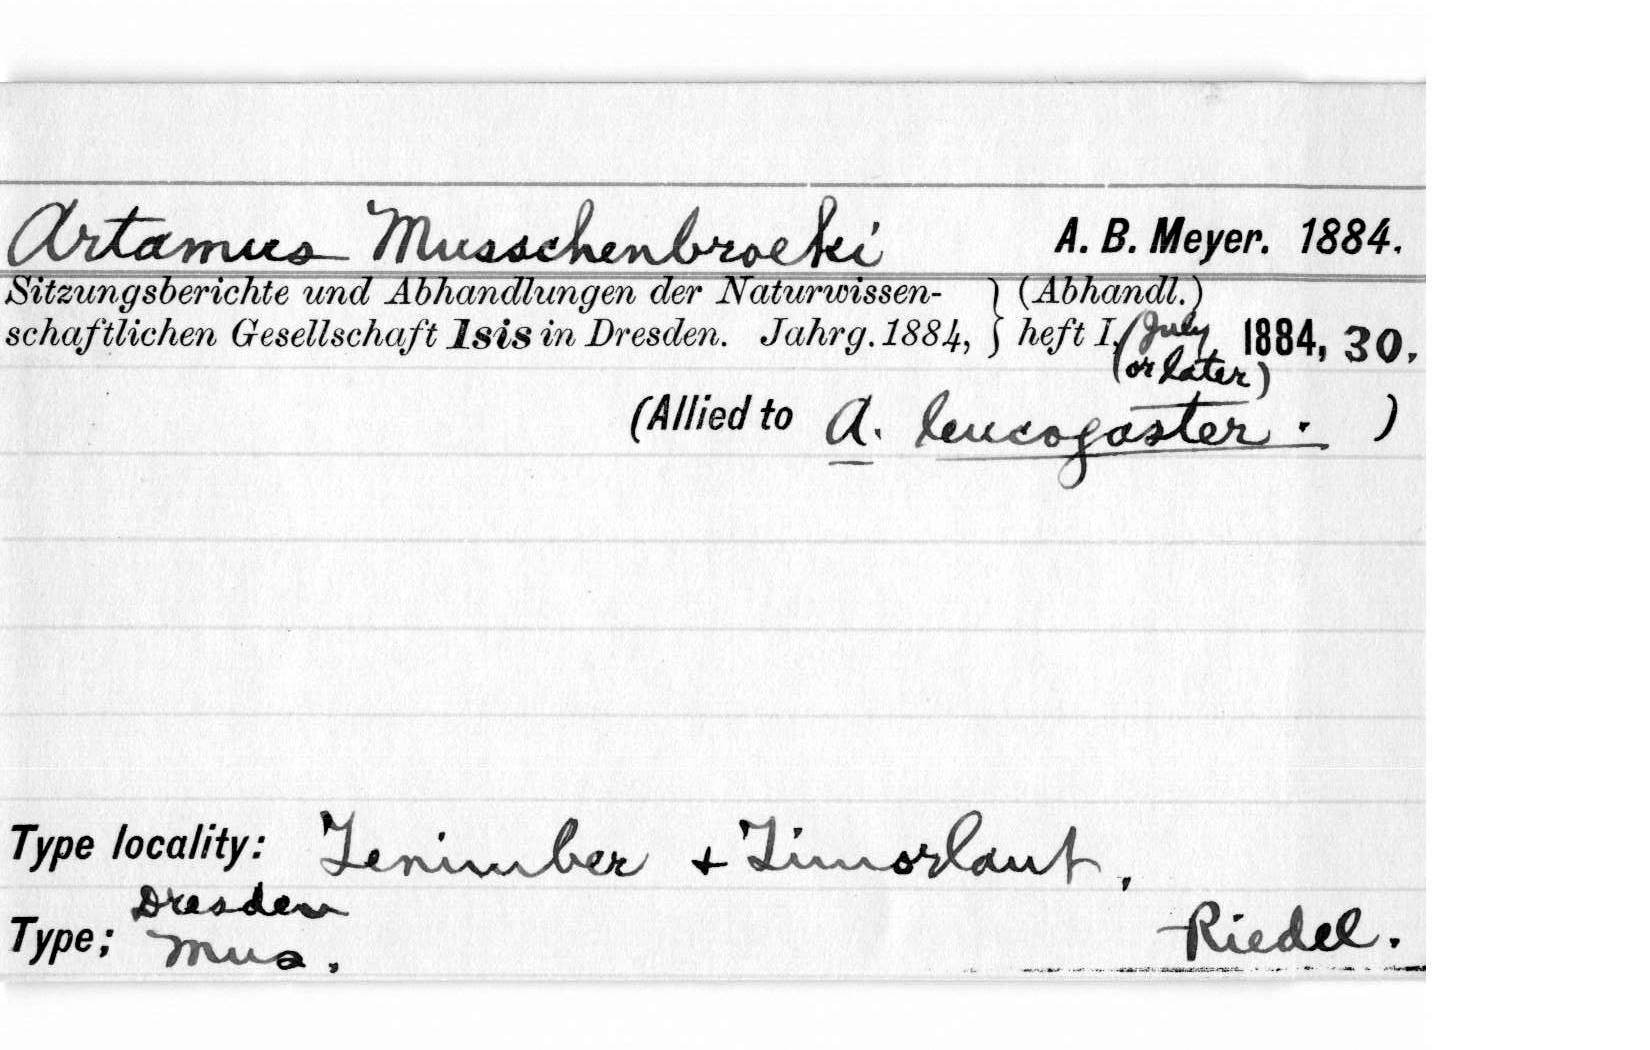 Artamus Musschenbroeki A. B. Meyer. 1884.
Sitzungsberichte und Abhandlungen der Naturwissen- } (Abhandl.)
schaftlichen Gesellschaft Isis in Dresden. Jahrg. 1884, } heft I, (July 1884, 30.
(or later)
(Allied to A. leucogaster. )
Type locality: Tenimber + Timorlaut,
Dresden
Type; Mus. Riedel.